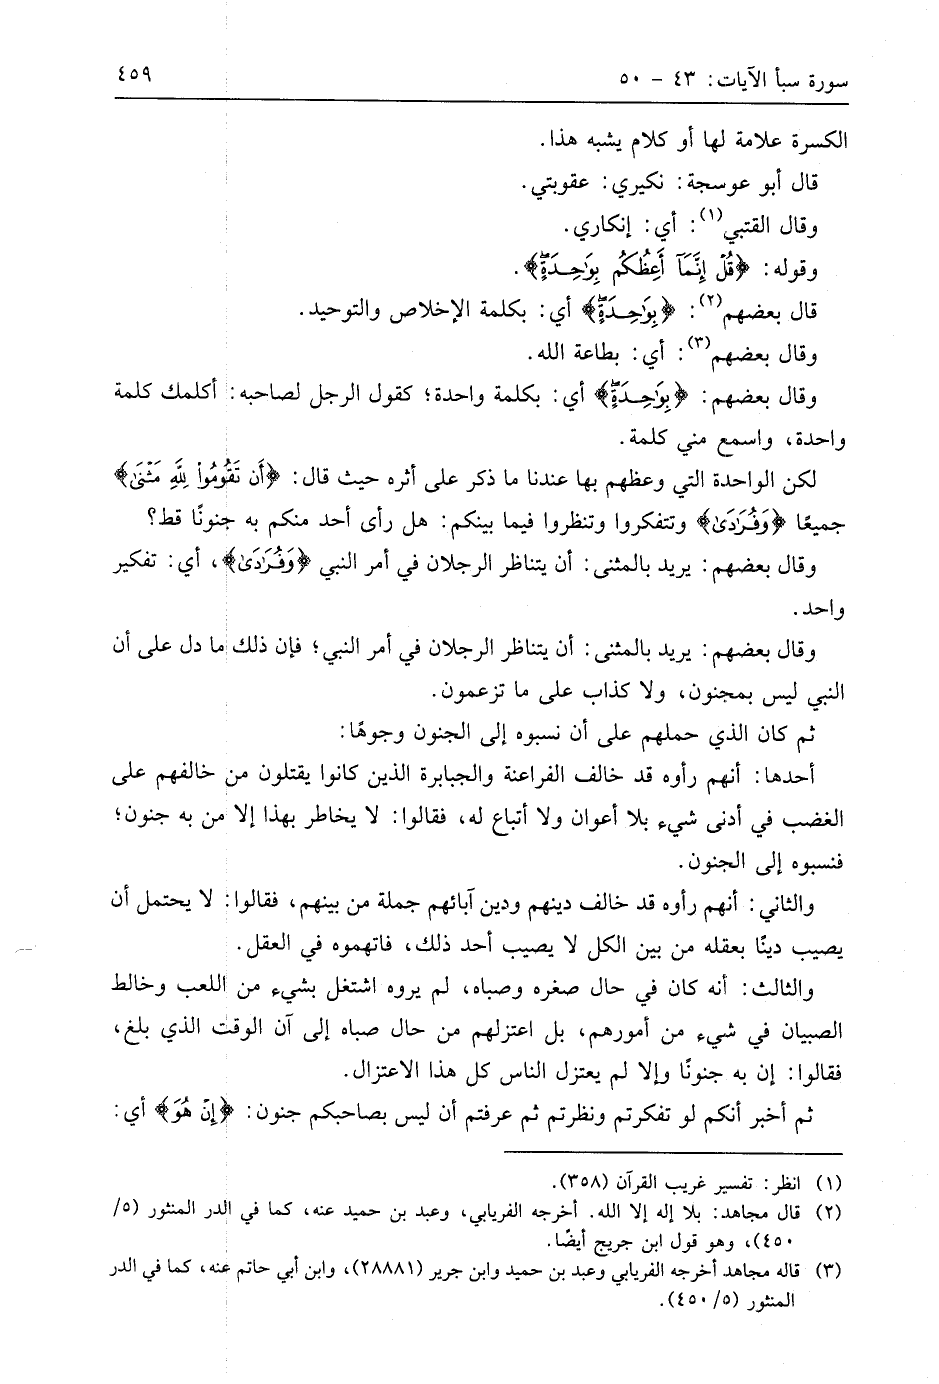 سورة سبأ الآيات: ٤٣ - ٥٠
٤٥٩
الكسرة علامة لها أو كلام يشبه هذا.
قال أبو عوسجة: نكيري: عقوبتي.
وقال القتبي(١): أي: إنكاري.
وقوله: ﴿قُلْ إِنَّمَآ أَعِظُكُم بِوَٰحِدَةٍۖ﴾.
قال بعضهم(٢): ﴿بِوَٰحِدَةٍۖ﴾ أي: بكلمة الإخلاص والتوحيد.
وقال بعضهم(٣): أي: بطاعة الله.
وقال بعضهم: ﴿بِوَٰحِدَةٍۖ﴾ أي: بكلمة واحدة؛ كقول الرجل لصاحبه: أكلمك كلمة
واحدة، واسمع مني كلمة.
لكن الواحدة التي وعظهم بها عندنا ما ذكر على أثره حيث قال: ﴿أَن تَقُومُواْ لِلَّهِ مَثْنَىٰ﴾
جميعًا ﴿وَفُرَٰدَىٰ﴾ وتتفكروا وتنظروا فيما بينكم: هل رأى أحد منكم به جنونًا قط؟
وقال بعضهم: يريد بالمثنى: أن يتناظر الرجلان في أمر النبي ﴿وَفُرَٰدَىٰ﴾، أي: تفكير
واحد.
وقال بعضهم: يريد بالمثنى: أن يتناظر الرجلان في أمر النبي؛ فإن ذلك ما دل على أن
النبي ليس بمجنون، ولا كذاب على ما تزعمون.
ثم كان الذي حملهم على أن نسبوه إلى الجنون وجوهًا:
أحدها: أنهم رأوه قد خالف الفراعنة والجبابرة الذين كانوا يقتلون من خالفهم على
الغضب في أدنى شيء بلا أعوان ولا أتباع له، فقالوا: لا يخاطر بهذا إلا من به جنون؛
فنسبوه إلى الجنون.
والثاني: أنهم رأوه قد خالف دينهم ودين آبائهم جملة من بينهم، فقالوا: لا يحتمل أن
يصيب دينًا بعقله من بين الكل لا يصيب أحد ذلك، فاتهموه في العقل.
والثالث: أنه كان في حال صغره وصباه، لم يروه اشتغل بشيء من اللعب وخالط
الصبيان في شيء من أمورهم، بل اعتزلهم من حال صباه إلى آن الوقت الذي بلغ،
فقالوا: إن به جنونًا وإلا لم يعتزل الناس كل هذا الاعتزال.
ثم أخبر أنكم لو تفكرتم ونظرتم ثم عرفتم أن ليس بصاحبكم جنون: ﴿إِنْ هُوَ﴾ أي:
(١) انظر: تفسير غريب القرآن (٣٥٨).
(٢) قال مجاهد: بلا إله إلا الله. أخرجه الفريابي، وعبد بن حميد عنه، كما في الدر المنثور (٥/
٤٥٠)، وهو قول ابن جريج أيضًا.
(٣) قاله مجاهد أخرجه الفريابي وعبد بن حميد وابن جرير (٢٨٨٨١)، وابن أبي حاتم عنه، كما في الدر
المنثور (٥/ ٤٥٠).